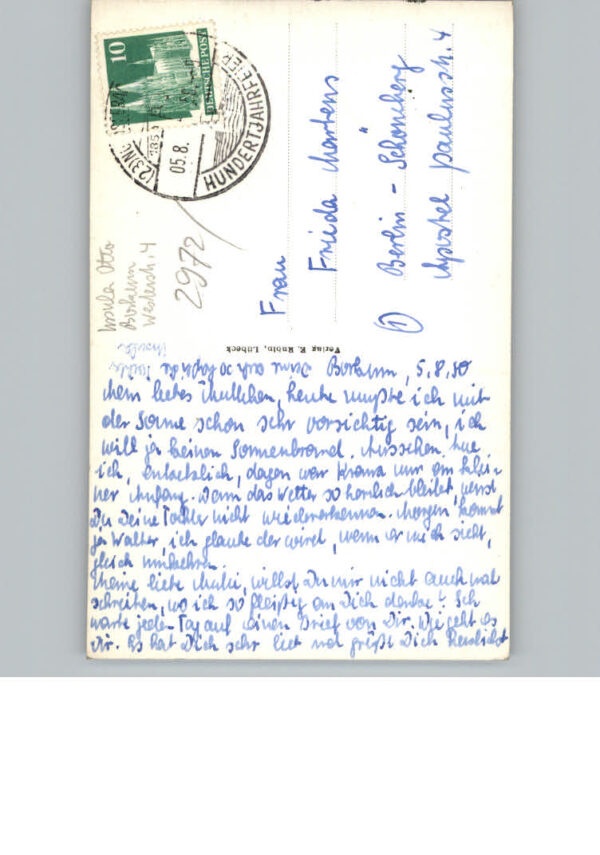 10
DEUTSCHE POST
(23)
05.8.
HUNDERTJAHRFEIER
Ursula Otto
Borkum
Westerstr. 4
2972
Frau
Frieda Martens
① Berlin - Schöneberg
Apostel Paulusstr. 4
Verlag E. Rubin, Lübeck
Borkum, 5.8.50
Mein liebes Muttchen, heute mußte ich mit
der Sonne schon sehr vorsichtig sein, ich
will ja keinen Sonnenbrand. Aussehen tue
ich, entsetzlich, dagegen war Kranz nur ein klei-
ner Anfang. Wenn das Wetter so herrlich bleibt, wirst
Du Deine Tochter nicht wiedererkennen. Morgen kommt
ja Walter, ich glaube der wird, wenn er mich sieht,
gleich umkehren.
Meine liebe Mutti, willst Du mir nicht auch mal
schreiben, wo ich so fleißig an Dich denke? Ich
warte jeden Tag auf einen Brief von Dir. Wie geht es
Dir. Es hat Dich sehr lieb und grüßt Dich herzlichst
Deine
Ursula